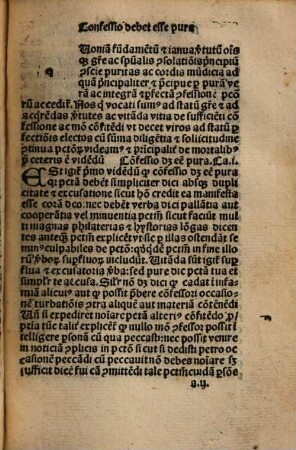 Confessio debet esse pura
Uoniā fūdamētū & ianua ꝟtutū oīs
ꝗ gr̄e ac spūalis ꝯsolatiōis pncipiū
ꝯscie puritas ac cordis mūdicia ad
quā pncipaliter & p̄cipue ꝑ purā ve
rā ac integrā & ꝑfectā ꝯfessionē pec
cōꝝ accedit᷑. Nos ꝗ vocati sumꝰ ad statū gr̄e & ad
acꝗrēdas ꝟtutes ac vitāda vitia de sufficiēti cō
fessione ac mō cōfitēdi vt decet viros ad statū ꝑ
fectiōis electos cū suma diligētia & solicitudine
ꝯtinua pctōꝝ videamꝰ & pncipaliṫ de mortalibꝰ
p̄ ceteris ē vidēdū Cōfessio dꝫ eē pura. Ca.i.
ESt igit᷑ pmo vidēdū ꝙ cōfessio dꝫ eē pura.
ꝙ pctā debēt simpliciter dici absqꝫ duplici
tate & excusatione sicut hō credit ea manifesta
esse corā deo .nec debēt verba dici palliata aut
cooperātia vel minuentia pctm̄ sicut faciūt mul
ti magnas philaterias & hystorias lōgas dicen
tes anteqꝫ pctm̄ explicēt ꝟr sic ꝑ illas ostendāt se
minꝰculpabiles de pctō:qꝫdē pctm̄ in fine illo
rū ꝟboꝝ supfluoꝝ includūt. Uitāda sūt igit᷑ sup
flua & excusatoria ꝟba: sed pure dic pctā tua et
simplr̄ te accusa. Si nō dꝫ dici ꝙ cadat ī infa
miā alicuiꝰ aut ꝙ possit phē̄re cōfessori occasio
nē turbatiōis ꝑtra aliquē aut materiā cōtēnēdi
Un̄ si expediret noiare pctm̄ alteriꝰ cōfitēdo ꝑ
pria tūc talit᷑ explicēt ꝙ nullo mō ꝯfessor possit ī
telligere psonā cū qua peccasti: nec possit venire
in noticiā ꝯplicis in pctō si cut si dedisti petro oc
casionē peccādi cū peccauit nō debes noiare sꝫ
sufficit dicē fui cā ꝯmittēdi tale pctm̄ cuidā psōe
a.ij.